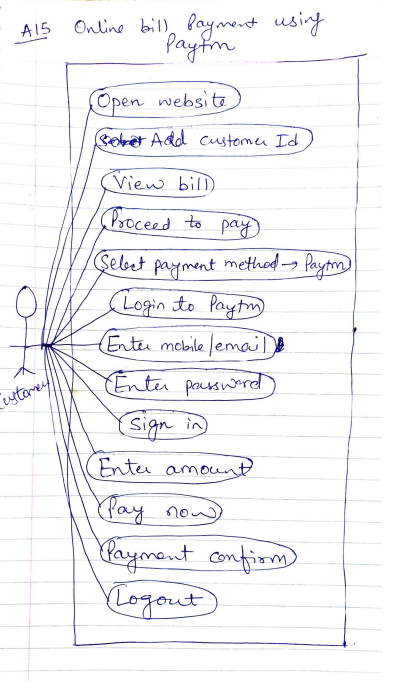 A15 Online bill Payment using
Paytm
Open website
Add customer Id
View bill
Proceed to pay
Select payment method → Paytm
Login to Paytm
Enter mobile/email
Enter password
Sign in
Enter amount
Pay now
Payment confirm
Logout
Customer